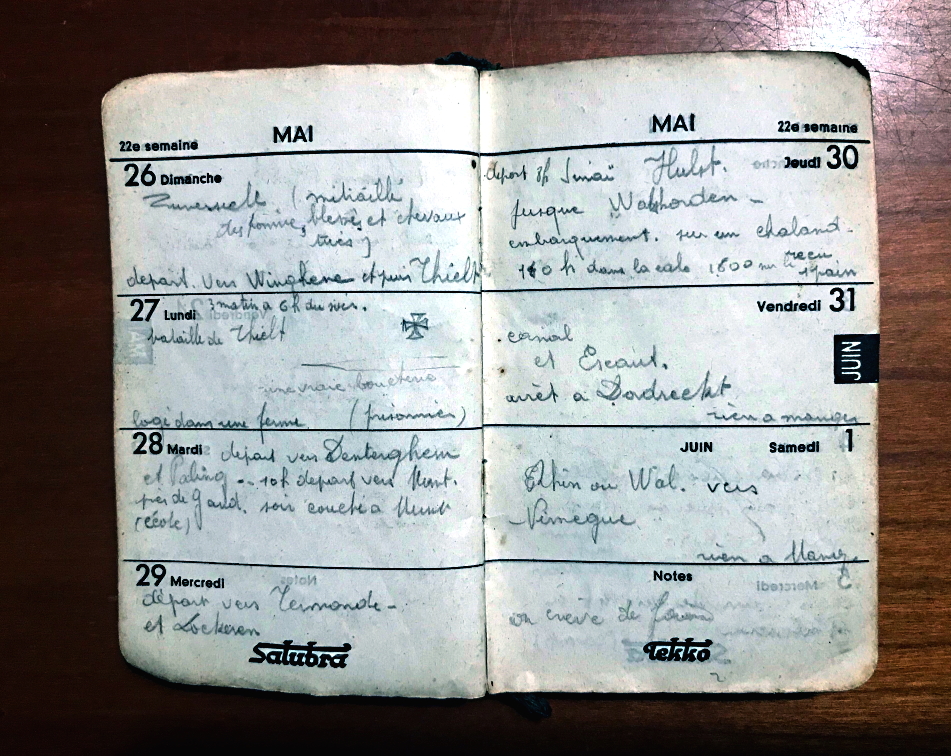 22e semaine MAI
26 Dimanche
(mitraillé
des hommes, blessés et chevaux
tués)
depart. vers Winghene et puis Thielt
27 Lundi 3 matin a 6h du soir.
bataille de Thielt
une vraie boucherie
logé dans une ferme (prisonnier)
28 Mardi depart vers Denterghem
et 10h depart vers
près de Gand. soir couché a
(école)
29 Mercredi
départ vers Termonde -
et Lockeren
Salubra
MAI 22e semaine
Jeudi 30
depart 8h Sinaï Hulst.
jusque Walshorden -
embarquement. sur un chaland.
h dans la cale 1800 sur le
1 pain
Vendredi 31
JUIN
canal
et Escaut.
arrêt a Dodrecht
rien a manger
JUIN Samedi 1
Rhin ou Wal. vers
Nimegue
rien a Mang.
Notes
on creve de faim
Tekko